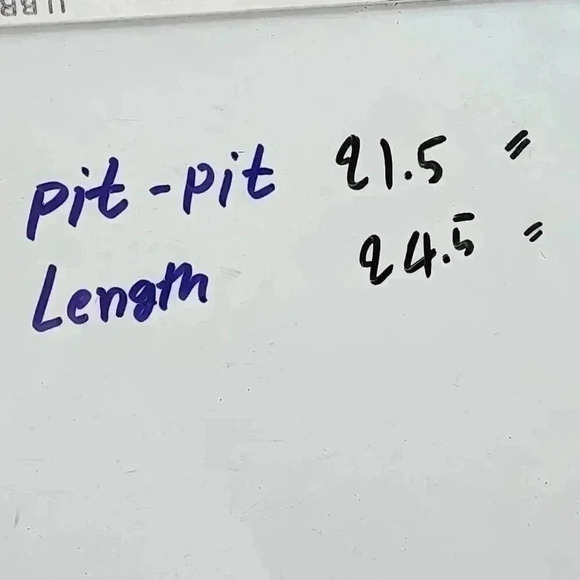 pit-pit 21.5 "
Length 24.5 "